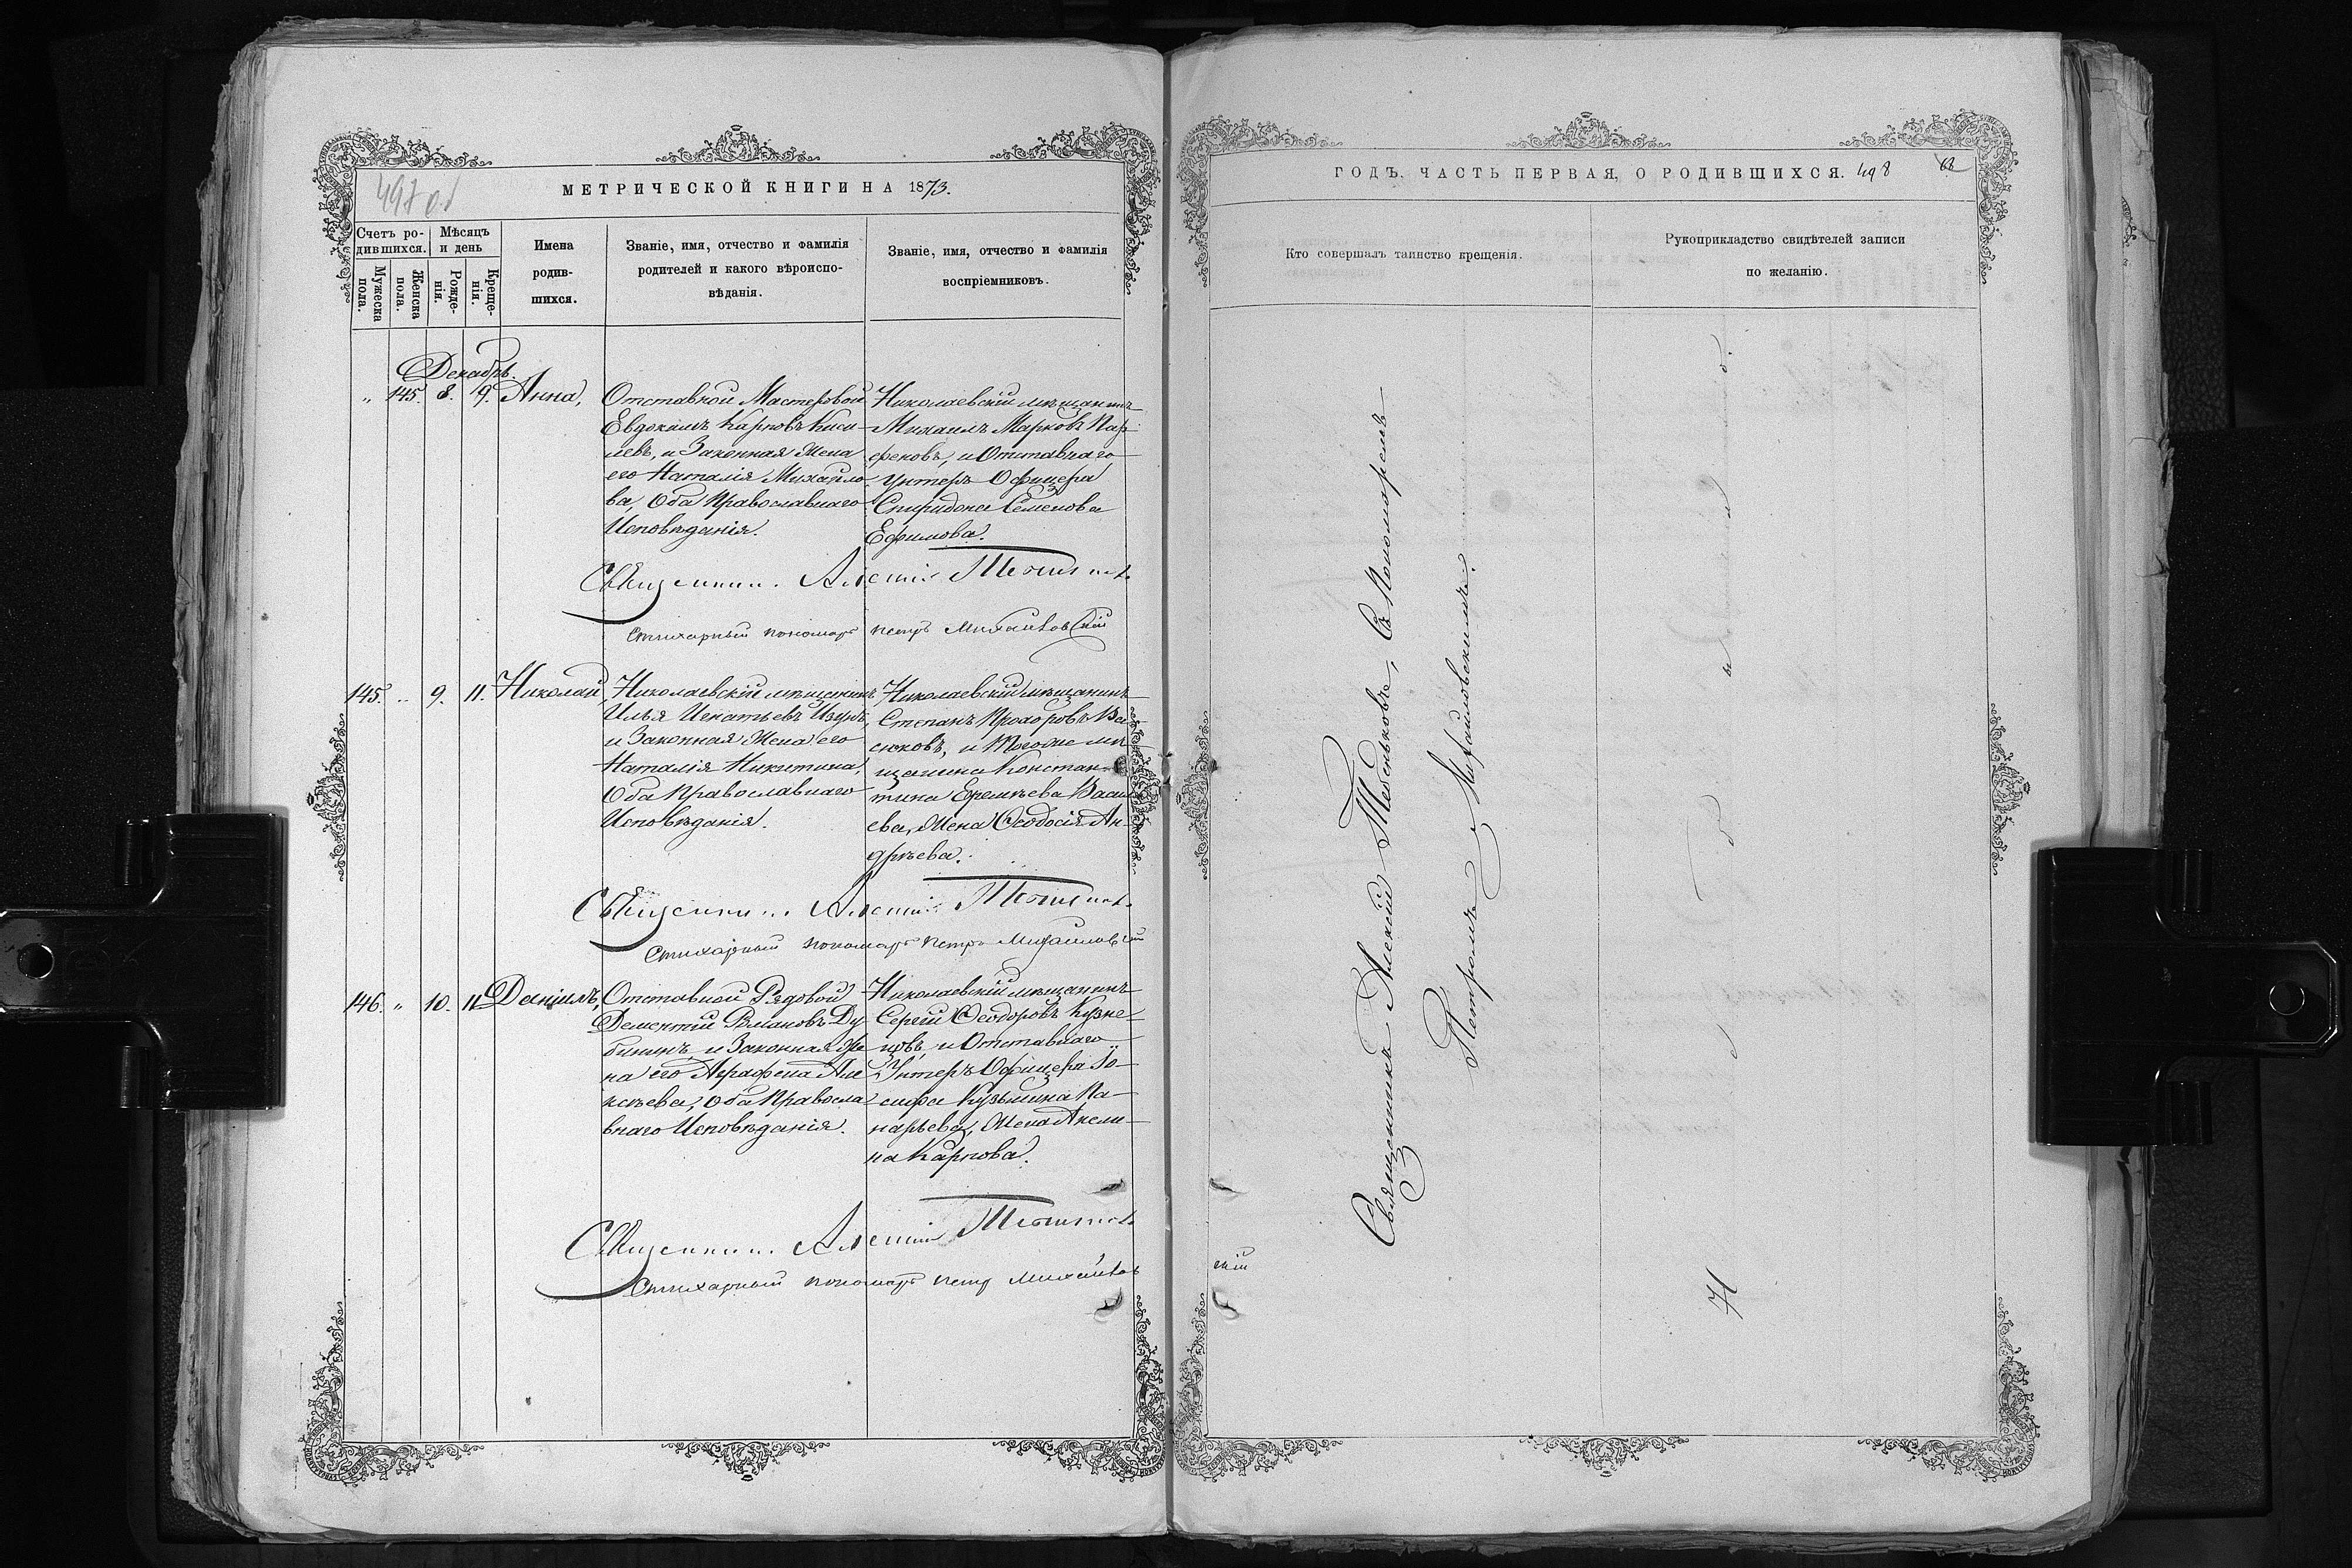 497 об
МЕТРИЧЕСКОЙ КНИГИ НА 1873.
Счетъ ро-
дившихся.
Мѣсяцъ
и день
Мужеска
пола.
Женска
пола.
Рожде-
нія.
Креще-
нія.
Имена
родив-
шихся.
Званіе, имя, отчество и фамилія
родителей и какого вѣроиспо-
вѣданія.
Званіе, имя, отчество и фамилія
воспріемниковъ.
Декабрь.
" 145. 8. 9. Анна,
Отставной Мастеровой
Евдокимъ Карповъ Киси-
левъ, и Законная Жена
его Наталія Михайло-
ва, Оба Православнаго
Исповѣданія.
Николаевскій мѣщанинъ
Михаилъ Марковъ Пар-
феновъ, и Отставнаго
Унтеръ Офицера
Спиридона Семенова
Ефимова.
Священникъ Алексій
Стихарный пономарь Петръ Михайловскій
145. " 9. 11. Николай,
Николаевскій мѣщанинъ
Илья Игнатьевъ
и Законная Жена его
Наталія Никитина,
Оба Православнаго
Исповѣданія.
Николаевскій мѣщанинъ
Степанъ Прохоровъ Ва-
сюковъ, и Тогоже мѣ-
щанина Констан-
тина Еремѣева Васи-
ева, Жена Ѳеодосія Ан-
дрѣева.
Священникъ Алексій
Стихарный пономарь Петръ Михайловскій
146. " 10. 11 Даніилъ,
Отставной Рядовой
Дементій Романовъ Ду-
бининъ, и Законная Же-
на его Аграфена Але-
ксѣева, Оба Правосла-
внаго Исповѣданія.
Николаевскій мѣщанинъ
Сергій Ѳеодоровъ Кузне-
цовъ, и Отставнаго
Унтеръ Офицера Іо-
сифа Кузьмина Па-
нарьева, Жена Акели-
на Карпова.
Священникъ Алексій
Стихарный пономарь Петръ Михайлов
скій
ГОДЪ. ЧАСТЬ ПЕРВАЯ, О РОДИВШИХСЯ. 498
Кто совершалъ таинство крещенія.
Рукоприкладство свидѣтелей записи
по желанію.
Священникъ Алексій Тебеньковъ, Съ Пономаремъ
Петромъ Михайловскимъ.